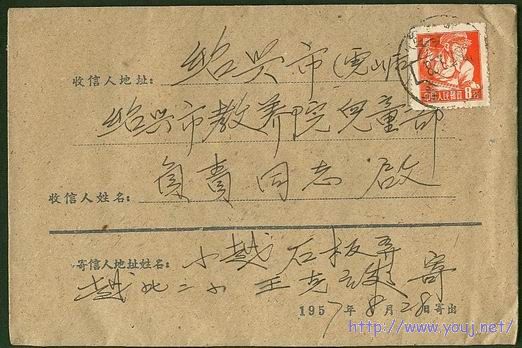 收信人地址: 绍兴市
绍兴市教养院儿童部
收信人姓名: 负责同志 启
寄信人地址姓名: 小越 石板弄
越北二小 王 寄
1957年8月28日寄出
中国人民邮政 8分
http://www.youj.net/